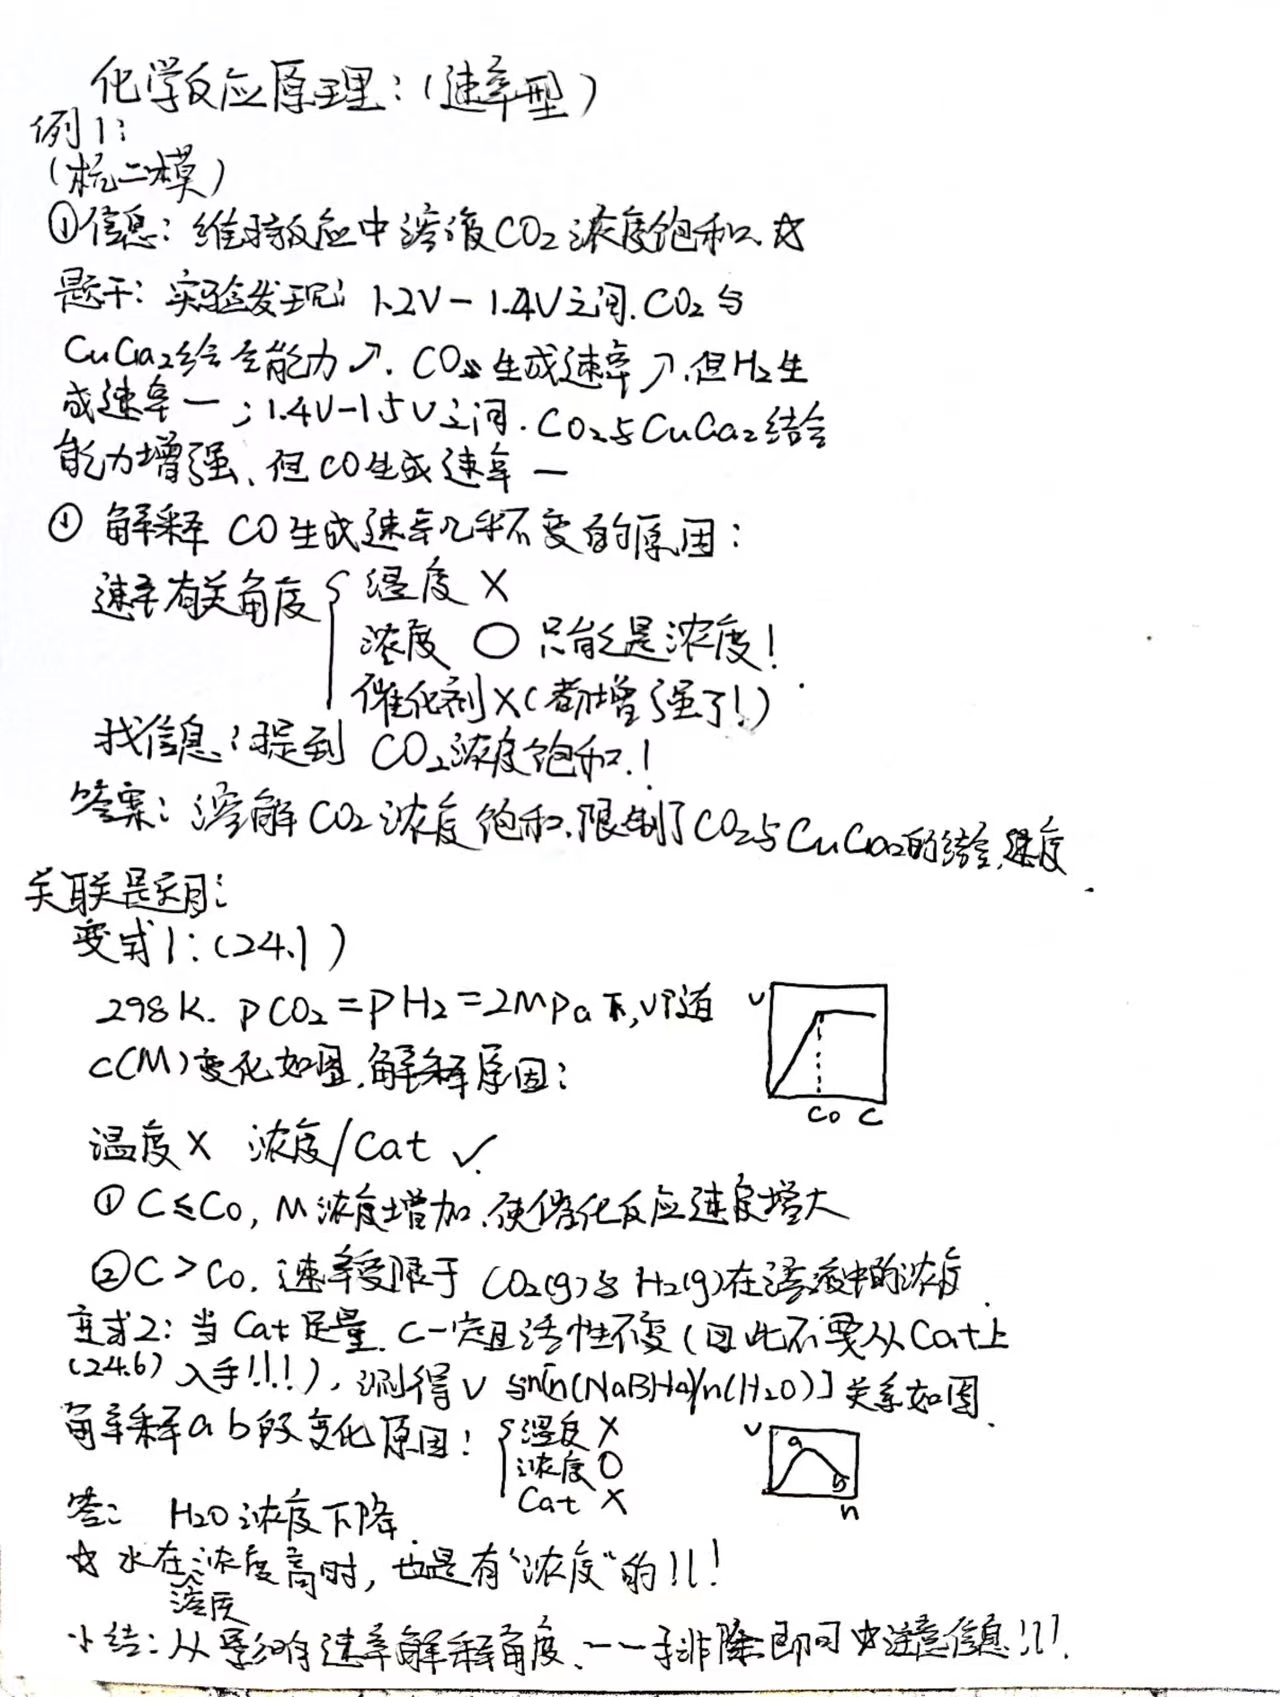 化学反应原理:(速率型)
例1:
(杭二模)
①信息: 维持反应中溶液CO2浓度饱和.☆
题干: 实验发现: 1.2V-1.4V之间.CO2与
CuGa2结合能力↗. CO生成速率↗.但H2生
成速率一;1.4V-1.5V之间.CO2与CuGa2结合
能力增强、但CO生成速率一
① 解释 CO生成速率几乎不变的原因:
速率有关角度 { 温度 X
浓度 O 只能是浓度!
催化剂X(都增强了!)
找信息:提到 CO2浓度饱和.!
答案: 溶解CO2浓度饱和.限制了CO2与CuGa2的结合速度.
关联题目:
变式1:(24.1)
298K. pCO2=pH2=2MPa下,v随
c(M)变化如图.解释原因:
v
C0 C
温度X 浓度/Cat ✓.
① C≤C0, M浓度增加.使催化反应速度增大
②C>C0. 速率受限于 CO2(g)与H2(g)在溶液中的浓度.
变式2: 当Cat足量. C一定且活性不变(因此不要从Cat上
(24.6) 入手!!!), 测得v与n[n(NaBH4)/n(H2O)]关系如图.
解释ab段变化原因: { 温度 X
浓度 O
Cat X
v
a
b
n
答: H2O浓度下降.
☆ 水在浓度高时, 也是有"浓度"的!!!
溶质
小结:从影响速率解释角度、一一排除即可☆注意信息!!!.